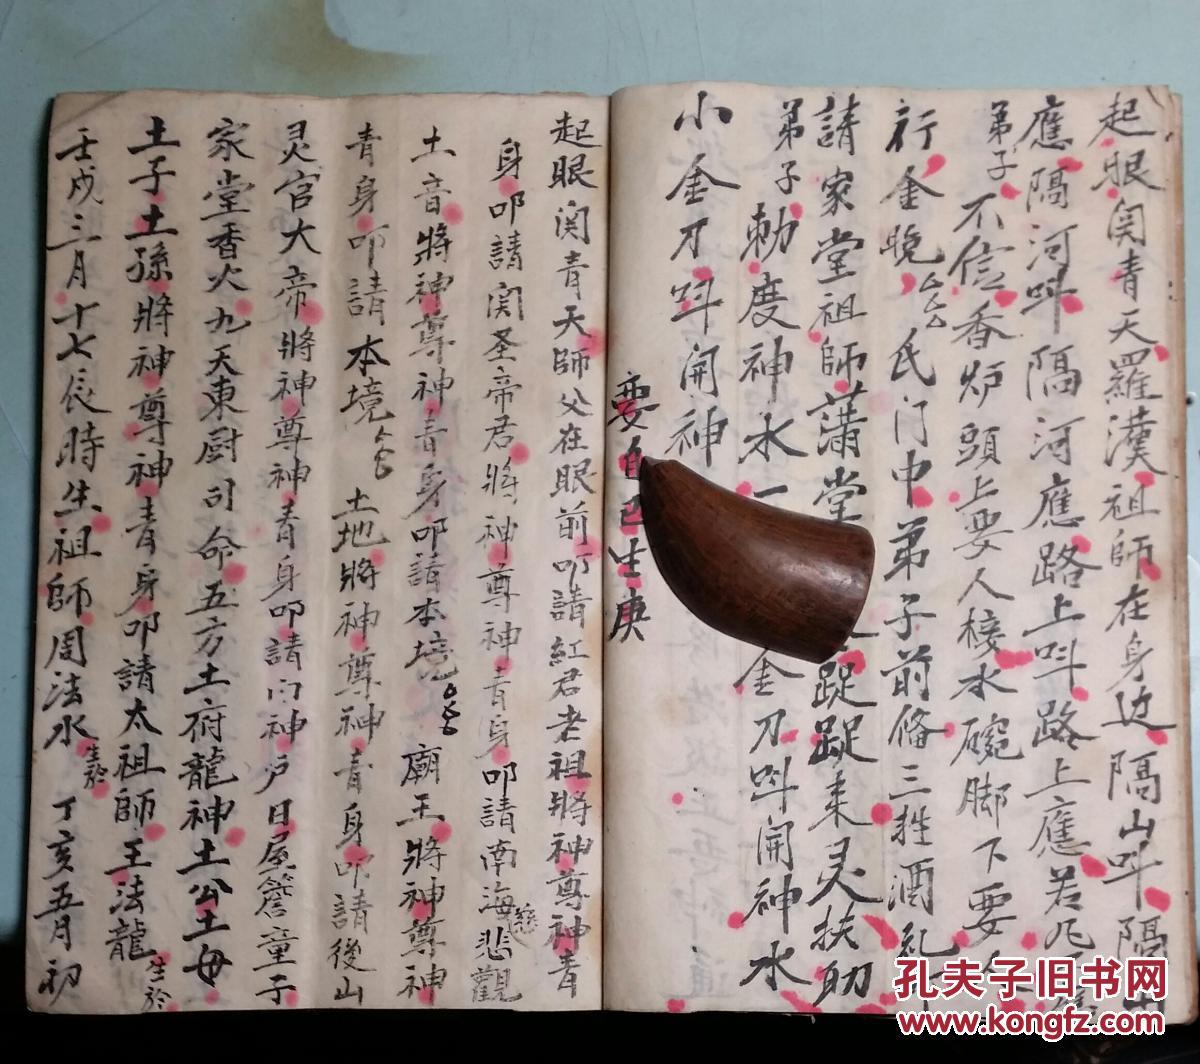 起眼関青天羅漢祖師在身边隔山呌隔山
應隔河呌隔河應路上呌路上應若凡
弟子不信香炉頭上要人棧水碗脚下要人
行金晚厶厶氏门中弟子前俻三牲酒礼
請家堂祖師蒲堂踀踀来灵扶助
弟子勅度神水一金刀呌開神水
小金刀呌開神
要自己生庚
起眼関青天師父在眼前叩請紅君老祖将神尊神青
身叩請関圣帝君将神尊神青身叩請南海慈悲觀
土音將神尊神青身叩請本境厶厶廟王將神尊神
青身叩請本境厶厶土地將神尊神青身叩請後山
灵官大帝將神尊神青身叩請门神户日屋簷童子
家堂香火九天東厨司命五方土府龍神土公土母
土子土孫將神尊神青身叩請太祖師王法龍生於
壬戌三月十七辰時生祖師周法水生於丁亥五月初
孔夫子旧书网
www.kongfz.com